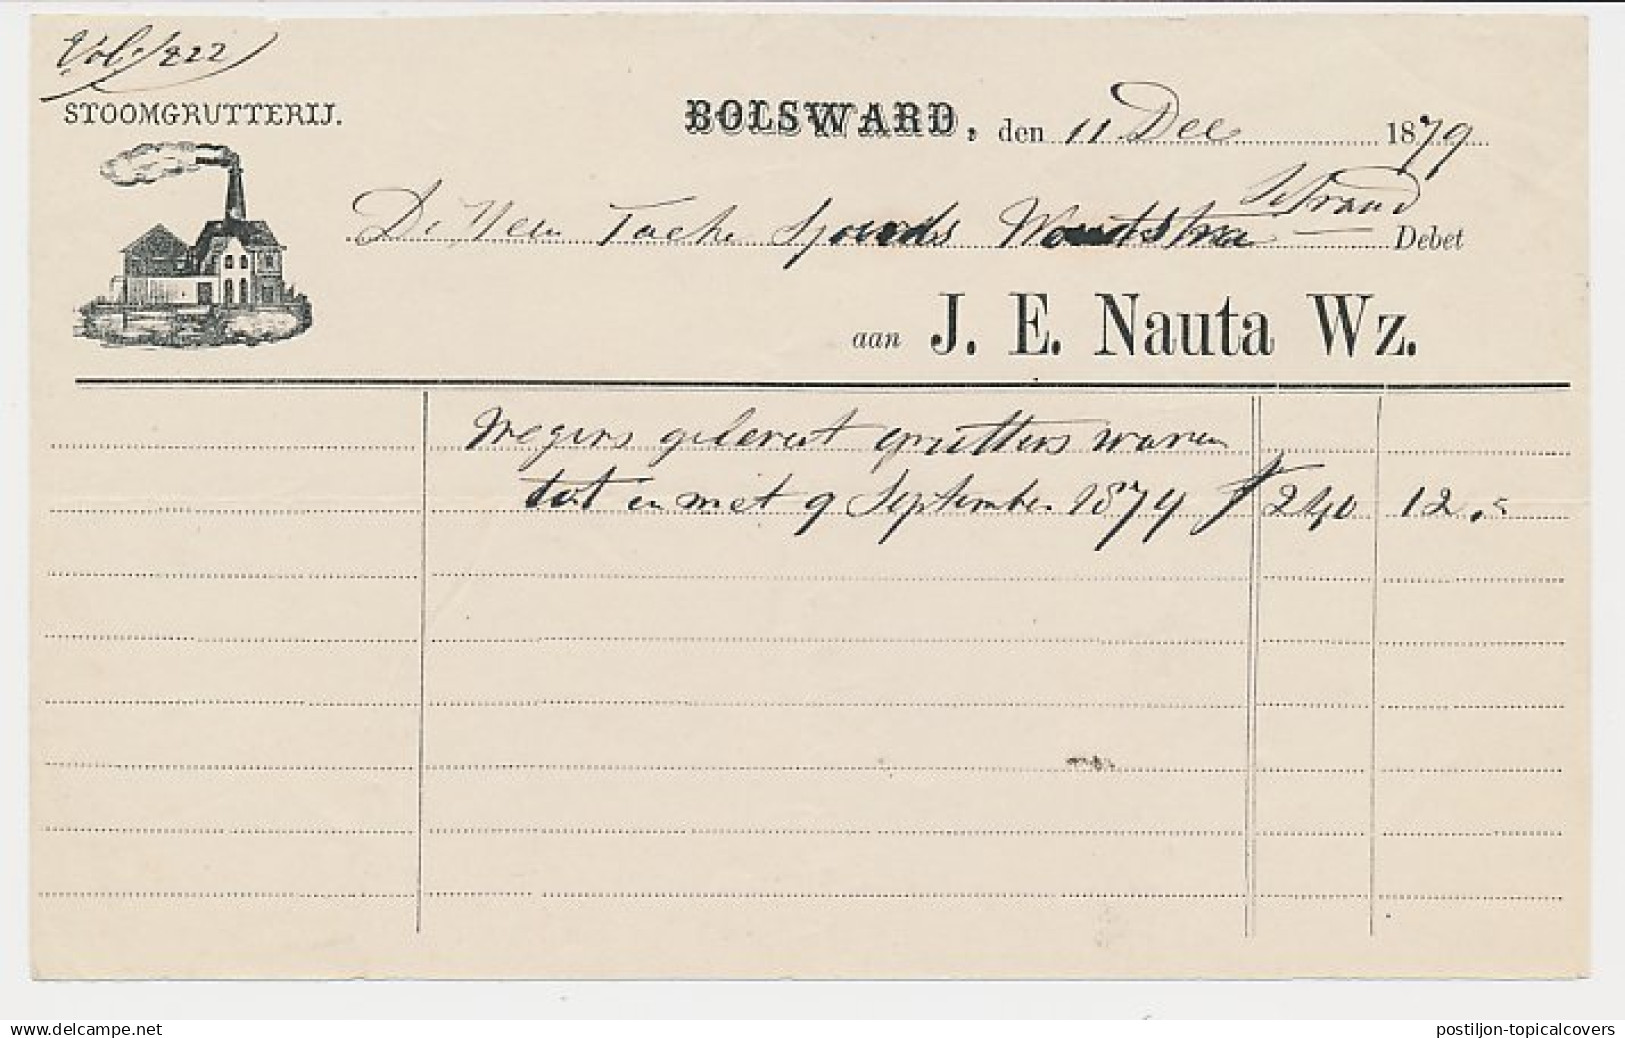 Vol. 222
STOOMGRUTTERIJ.
BOLSWARD, den 11 Dec 1879
De Heer Taeke Sjoerds Woudstra Debet
aan J. E. Nauta Wz.
Wegens gelevert grutters waren
tot en met 9 September 1879 f 240 12.5
delcampe.net
postiljon-topicalcovers